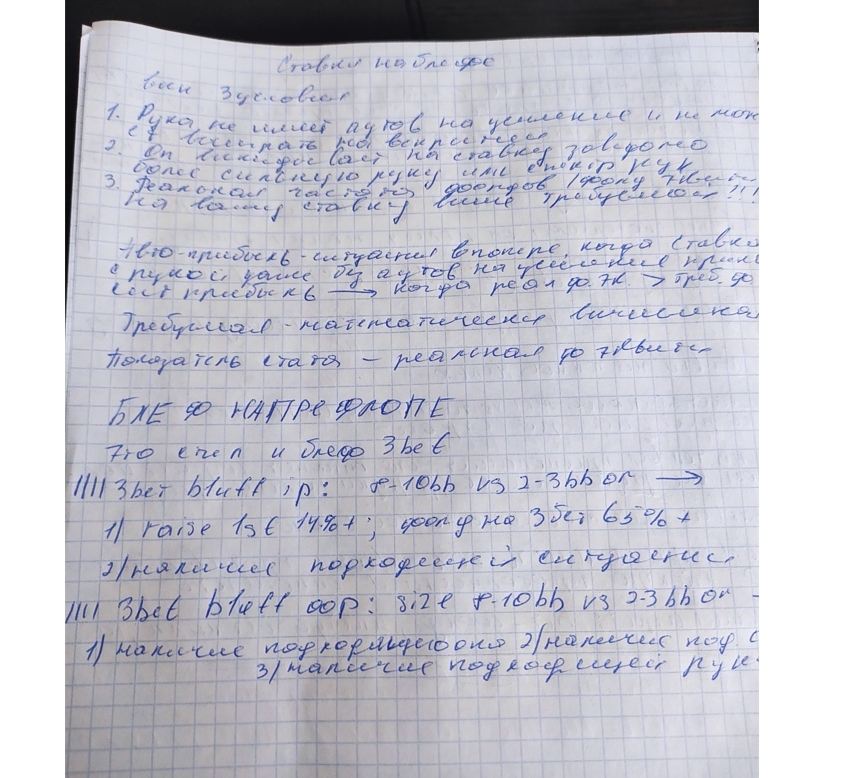 Ставки на блефе
вып 3 условия
1. Рука не имеет аутов на усиление и не мож
ет выиграть на вскрытии
2. Оп выкидывает на ставку заведомо
более сильную руку или спектр рук
3. Реальная частота фолдов / фолд эквити
на вашу ставку выше требуемой!!!
Авто-прибыль - ситуация в покере, когда ставка
с рукой даже без аутов на усиление
прибыль → когда реал фо. эк. > треб. фо
Требуемая - математически
Показатель стата - реальная фо эквити
БЛЕФ НА ПРЕФЛОПЕ
Это стил и блеф 3bet
//// 3bet bluff ip: 8-10bb vs 2-3bb or →
1) raise 1st 14%+; фолд на 3бет 65%+
2) наличие подходящей ситуации
//// 3bet bluff oop: size 8-10bb vs 2-3bb or -
1) наличие подходящего опа 2) наличие под. с
3) наличие подходящей рук